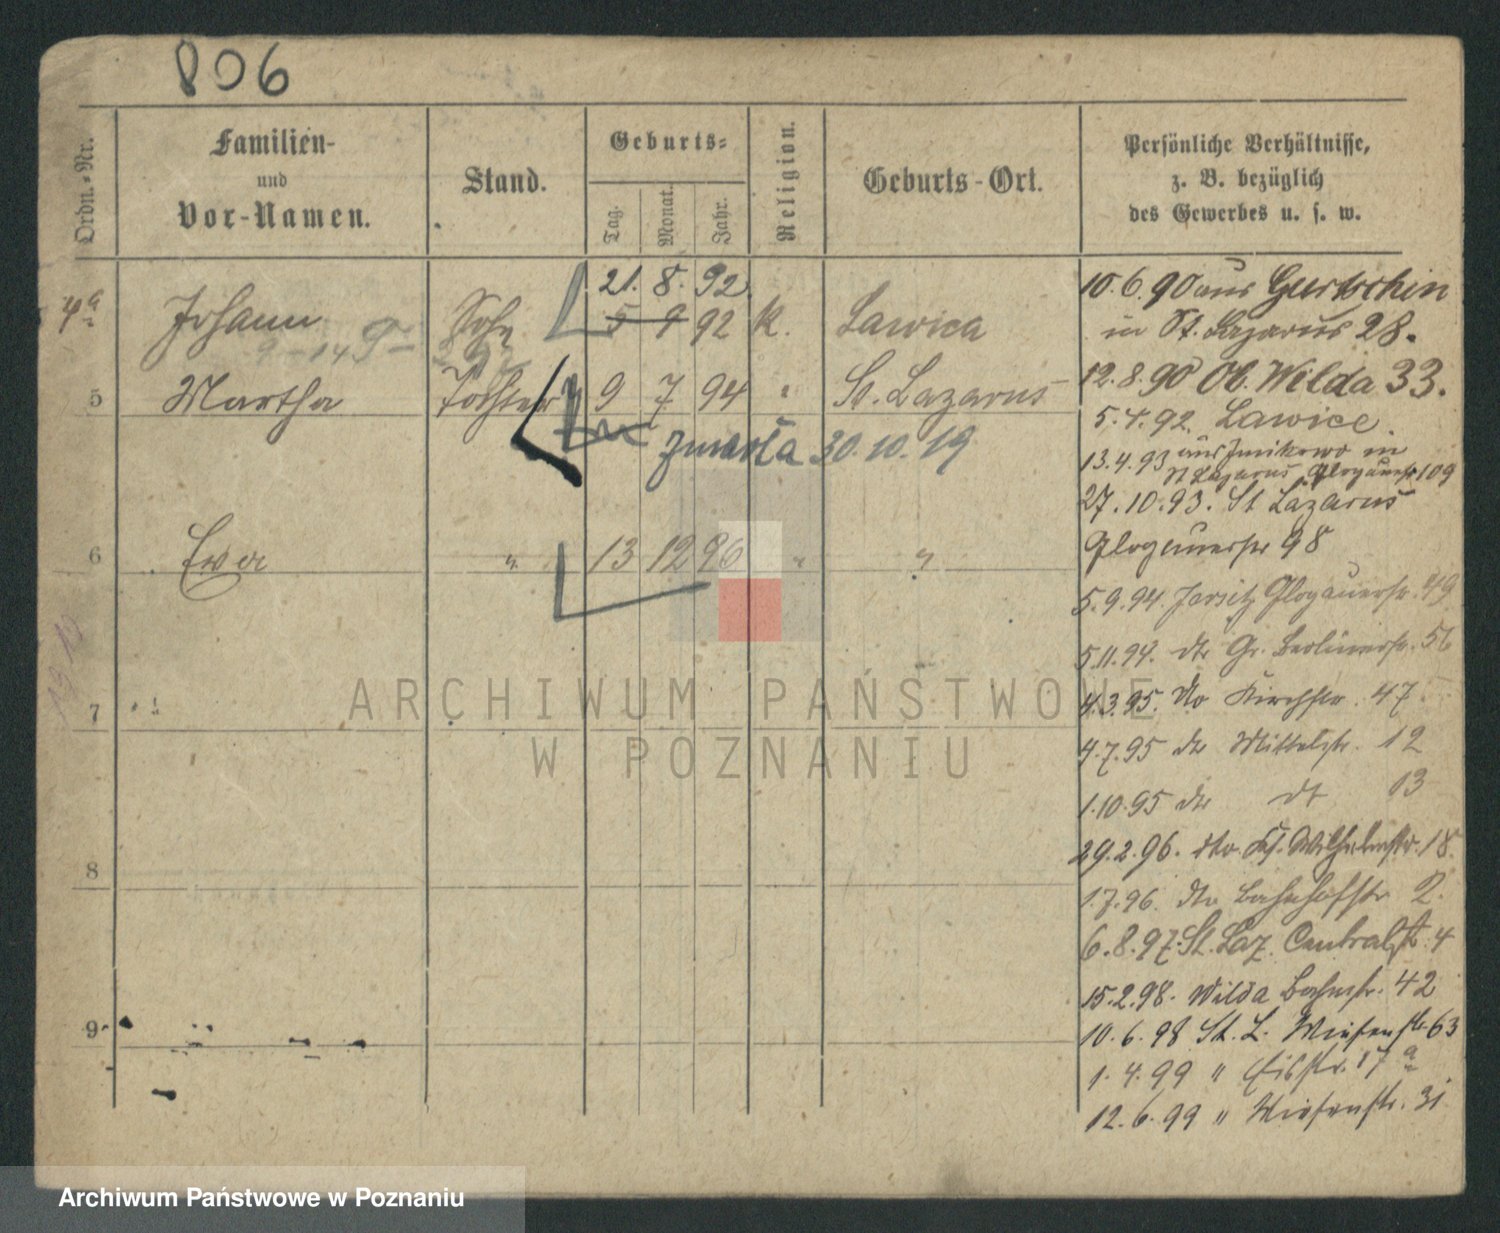 806
Ordn.-Nr.
Familien-
und
Vor-Namen.
Stand.
Geburts-
Tag.
Monat.
Jahr.
Religion.
Geburts-Ort.
Persönliche Verhältnisse,
z. B. bezüglich
des Gewerbes u. s. w.
21. 8. 92
4a Johann Sohn 5 9 92 K. Lawica
9-14
5 Martha Tochter 9 7 94 " St. Lazarus
zmarła 30.10.19
6 Ewa " 13 12 96 " "
7
8
9
10.6.90 aus Gurtschin
in St. Lazarus 28.
12.8.90 Ob. Wilda 33.
5.4.92 Lawice
13.4.93 aus Junikowo in
St Lazarus Glogauerstr 109
27.10.93. St Lazarus
Glogauerstr 98
5.9.94. Jersitz Glogauerstr. 49
5.11.94. dto Gr. Berlinerstr. 56
4.3.95. dto Kirchstr. 47
4.7.95 dto Mittelstr. 12
1.10.95 dto dt 13
29.2.96. dto. Wilhelmstr. 18.
1.7.96. dto Bahnhofstr 2.
6.8.97. St. Laz. Centralstr. 4
15.2.98. Wilda Bahnstr. 42
10.6.98 St. L. Wiesenstr. 63
1.4.99 " Eisstr. 17a
12.6.99 " Wiesenstr. 31
ARCHIWUM PAŃSTWOWE
W POZNANIU
Archiwum Państwowe w Poznaniu